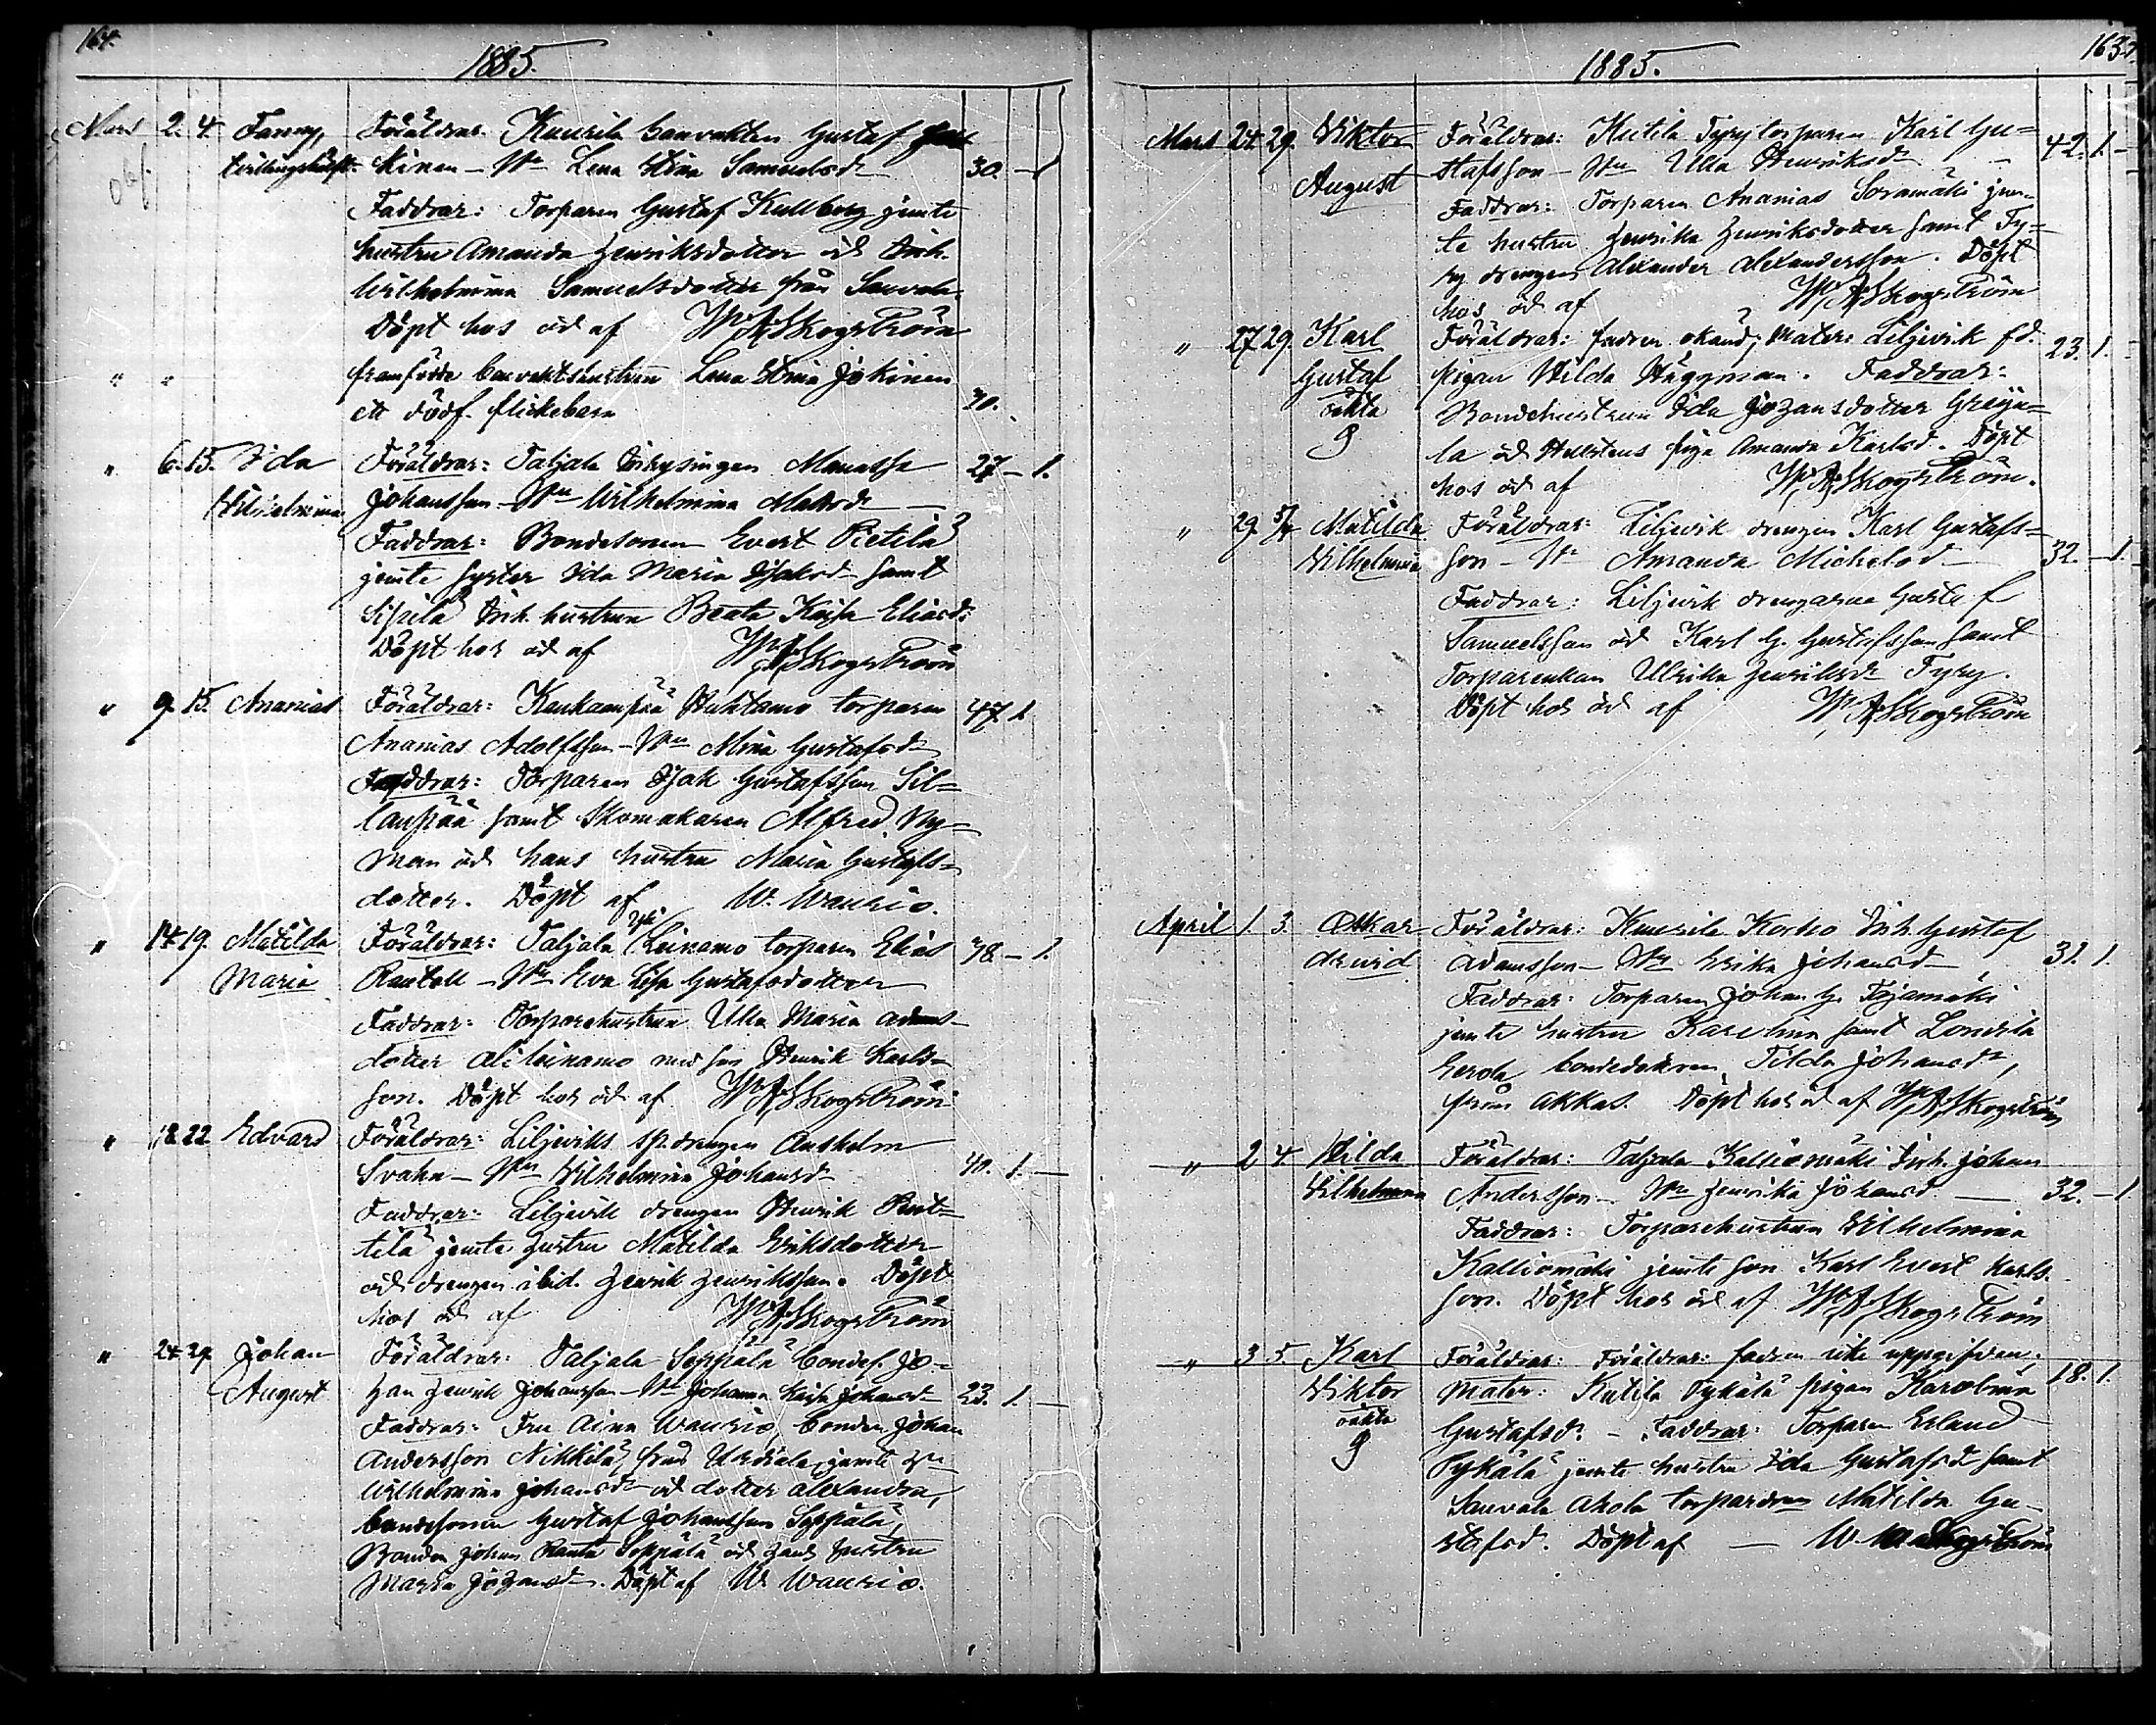 164.
1885.
Mars 2. 4. Fanny, Föräldrar: Kuurila banvakten Gustaf
tvillingsköfte. kinen - H:u Lena Stina Samuelsd:r 30. - 1
Faddrar: Torparen Gustaf Kullberg jemte
hustru Amanda Henriksdotter och Inh.
Wilhelmina Samuelsdotter från Sauvala.
Döpt hos och af W. A. Skogström
" " framfödde banvaktshustrun Lena Stina Jokinen
ett dödf. flickebarn 30.
" 6. 15. Ida Föräldrar: Taljala Inhysingen Manasse 27 - 1.
Vilhelmina Johansson - H:u Wilhelmina Matsd:r
Faddrar: Bondesonen Evert Pietilä
jemte syster Ida Maria Isaksd:r samt
Sipilä Inh. hustrun Beata Kaisa Eliasd:r
Döpt hos och af W. A. Skogström
" 9. 15. Ananias Föräldrar: Kankaanpää Huhtamo torparen 47. 1
Ananias Adolfsson - H:u Mina Gustafsd:r
Faddrar: Torparen Isak Gustafsson Sil-
lanpää samt Skomakaren Alfred Ny-
man och hans hustru Maria Gustafs-
dotter. Döpt af W. Waurio.
" 14. 19. Matilda Föräldrar: Taljala Yli Leinamo torparen Elias 38 - 1.
Maria Rantell - H:u Eva Lisa Gustafsdotter
Faddrar: Torparehustrun Ulla Maria Adams-
dotter Alileinamo med son Henrik Karls-
son. Döpt hos och af W. A. Skogström
" 18. 22 Edvard Föräldrar: Liljeviks sp. drengen Anshelm
Svahn - H:u Vilhelmina Johansd:r 40. 1. -
Faddrar: Liljevik drengen Henrik Rut-
tila jemte hustru Matilda Eriksdotter
och drengen ibid. Henrik Henriksson. Döpt
hos och af W. A. Skogström
" 24 29 Johan Föräldrar: Taljala Seppälä bondes. Jo-
August han Henrik Johansson - H:u Johanna Kaisa Johansd:r 23. 1. -
Faddrar: Fru Aina Waurio, bonden Johan
Andersson Nikkilä från Urdiala, jemte h:u
Wilhelmina Johansd:r och dotter Alexandra,
bondesonen Gustaf Johansson Seppälä,
Bonden Johan Ranta Seppälä och hans hustru
Maria Johansd:r. Döpt af W. Waurio.
163.
1885.
Mars 24 29. Viktor Föräldrar: Kutila Tyry torparen Karl Gu- 42. 1. -
August stafsson - H:u Ulla Henriksd:r
Faddrar: Torparen Ananias Soramäki jem-
te hustru Henrika Henriksdotter samt Ty-
ry drengen Alexander Alexandersson. Döpt
hos och af W. A. Skogström
" 27 29. Karl Föräldrar: fadren okänd; Mater: Liljevik fd. 23. 1.
Gustaf pigan Hilda Häggman. Faddrar:
oäkta Bondehustrun Ida Johansdotter Greijy-
la och Hellstens piga Amanda Karlsd. Döpt
hos och af W. A. Skogström.
" 29. 5/4 Matilda Föräldrar: Liljevik drengen Karl Gustafs-
Vilhelmina son - H:u Amanda Michelsd:r 32. - 1.
Faddrar: Liljevik drengarne Gustaf
Samuelsson och Karl G. Gustafsson samt
Torparenkan Ulrika Henriksd:r Tyry.
Döpt hos och af W. A. Skogström
April 1. 3. Oskar Föräldrar: Kuurila Korho Inh. Gustaf
Arvid Adamsson - H:u Erika Johansd:r 31. 1.
Faddrar: Torparen Johan G. Tojamäki
jemte hustru Karolina samt Lontila
Eerola bondedotren Tilda Johansd:r,
från Akkas. Döpt hos och af W. A. Skogström
" 2 4. Hilda Föräldrar: Taljala Kalliomäki Inh. Johan
Vilhelmina Andersson - H:u Henrika Johansd:r 32. - 1
Faddrar: Torparehustrun Vilhelmina
Kalliomäki jemte son Karl Evert Karls-
son. Döpt hos och af W. A. Skogström
" 3 5. Karl Föräldrar: Föräldrar: fadren icke uppgifven; 18. 1.
Viktor Mater: Kutila Pykälä pigan Karolina
oäkta Gustafsd:r - Faddrar: Torparen Erland
Pykälä jemte hustru Ida Gustafsd samt
Sauvala Ahola torpardren Matilda Gu-
stafsd. Döpt af - W. A. Skogström